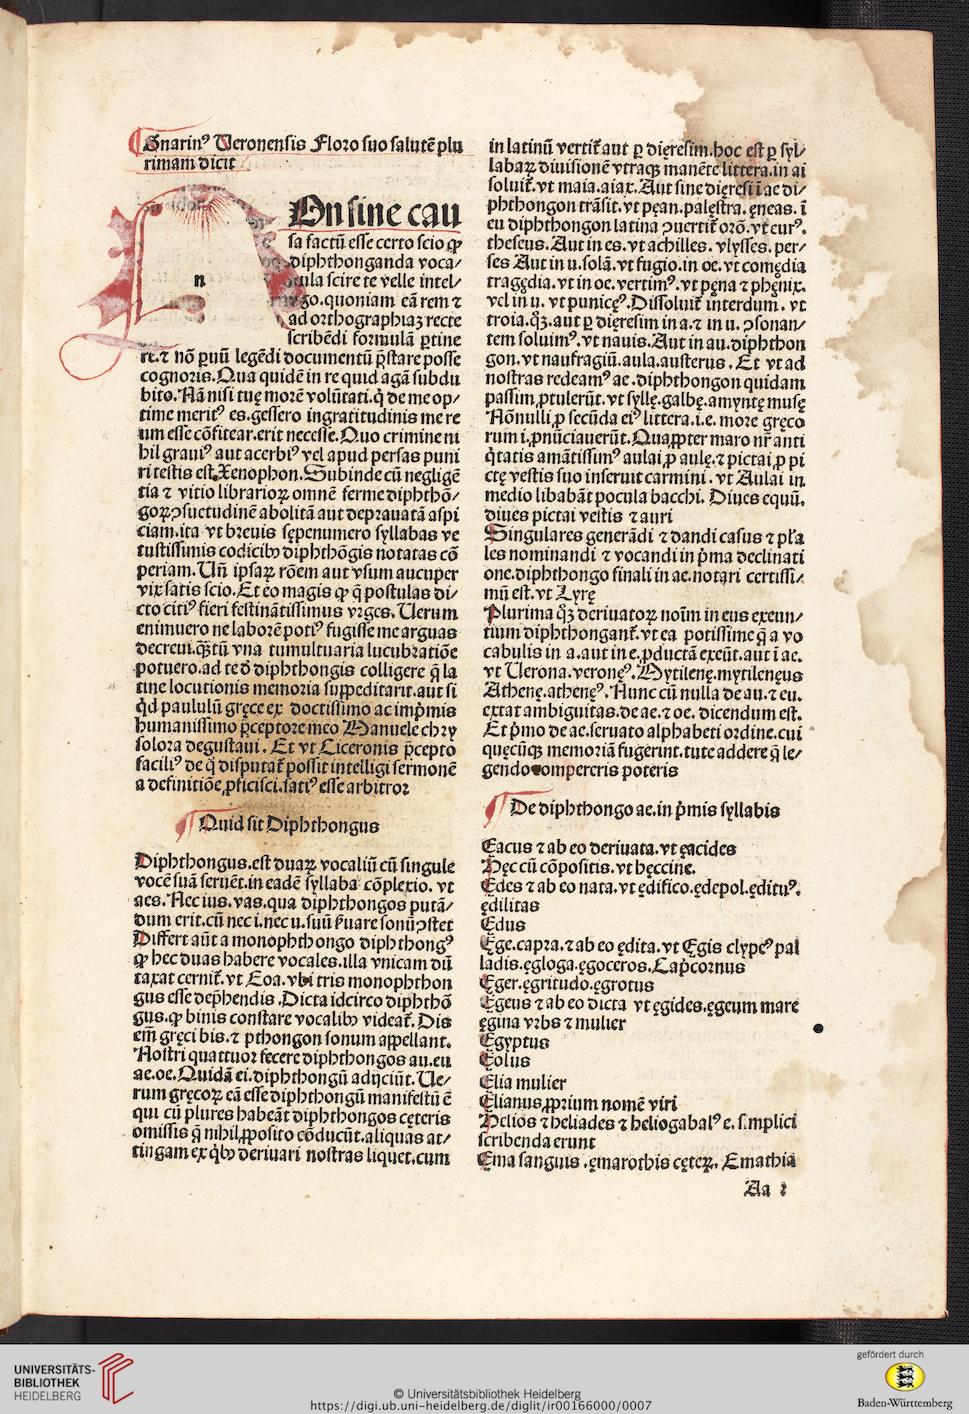 Gnarinꝰ Ueronensis Floro suo salutē plu
rimam dicit
n
On sine cau
sa factū esse certo scio ꝙ
diphthonganda voca/
bula scire te velle intel/
ligo.quoniam eā rem ⁊
ad orthographiaꝫ recte
scribēdi formulā ꝑtine
re.⁊ nō ꝑuū legēdi documentū p̄stare posse
cognoris.Qua quidē in re quid agā subdu
bito.Nā nisi tuę morē volūtati.q̇ de me op/
time meritꝰ es.gessero ingratitudinis me re
um esse cōfitear.erit necesse.Quo crimine ni
hil grauiꝰ aut acerbiꝰ vel apud persas puni
ri testis est.Xenophon.Subinde cū negligē
tia ⁊ vitio librarioꝝ omnē ferme diphthō/
goꝝ ↄsuetudinē abolitā aut deprauatā aspi
ciam.ita vt breuis sępenumero syllabas ve
tustissimis codicibꝰ diphthōgis notatas cō
periam.Uñ ipsaꝝ rōem aut vsum aucuper
vix satis scio.Et eo magis ꝙ q̄ postulas di/
cto citiꝰ fieri festinātissimus vrges.Uerum
enimuero ne laborē potiꝰ fugisse me arguas
decreui.qꝫtū vna tumultuaria lucubratiōe
potuero.ad te d̄ diphthongis colligere q̄ la
tine locutionis memoria suppeditarit.aut si
qd̓ paululū gręce ex doctissimo ac imp̄mis
humanissimo p̄ceptore meo Manuele chry
solora degustaui. Et vt Ciceronis p̄cepto
faciliꝰ de q̄ disputat̄ possit intelligi sermonē
a definitiōe ꝓficisci.satiꝰ esse arbitror
Quid sit Diphthongus
Diphthongus.est duaꝝ vocaliū cū singule
vocē suā seruēt.in eadē syllaba cōplexio. vt
aes.Nec ius.vas.qua diphthongos putā/
dum erit.cū nec i.nec u.suū s̄uare sonū ↄstet
Differt aūt a monophthongo diphthongꝰ
ꝙ hec duas habere vocales.illa vnicam dū
taxat cernit̄.vt Eoa.vbi tris monophthon
gus esse dep̄hendis.Dicta idcirco diphthō
gus.ꝙ binis constare vocalibꝰ videat̄.Dis
em̄ gręci bis.⁊ pthongon sonum appellant.
Nostri quattuor fecere diphthongos au.eu
ae.oe.Quidā ei.diphthongū adijciūt.Ue/
rum gręcoꝝ eā esse diphthongū manifestū ē
qui cū plures habeāt diphthongos cęteris
omissis q̄ nihil ꝓposito cōducūt.aliquas at/
tingam ex q̇bꝰ deriuari nostras liquet.cum
in latinū vertit̄ aut ꝑ dięresim.hoc est ꝑ syl/
labaꝝ diuisionē vtraqꝫ manēte littera.in ai
soluit̄.vt maia.aiax.Aut sine dięresi ī ae di/
phthongon trāsit.vt pęan.palęstra.ęneas.ī
eu diphthongon latina ↄuertit̄ orō.vt eurꝰ.
theseus.Aut in es.vt achilles. vlysses. per/
ses Aut in u.solā.vt fugio.in oe.vt comędia
tragędia.vt in oe.vertimꝰ.vt pęna ⁊ phęnix.
vel in u. vt punicęꝰ.Dissoluit̄ interdum. vt
troia.qꝫ.aut ꝑ dięresim in a.⁊ in u. ↄsonan/
tem soluimꝰ.vt nauis.Aut in au.diphthon
gon.vt naufragiū.aula.austerus. Et vt ad
nostras redeamꝰ ae.diphthongon quidam
passim ꝓtulerūt.vt syllę.galbę.amyntę musę
Nōnulli ꝓ secūda eiꝰ littera.i.e. more gręco
rum i.ꝓnūciauerūt.Quapꝑter maro nr̄ anti
q̇tatis amātissimꝰ aulai ꝓ aulę.⁊ pictai ꝓ pi
ctę vestis suo inseruit carmini. vt Aulai in
medio libabāt pocula bacchi. Diues equū.
diues pictai vestis ⁊ auri
Singulares generādi ⁊ dandi casus ⁊ plr̄a
les nominandi ⁊ vocandi in p̄ma declinati
one.diphthongo finali in ae.notari certissi/
mū est.vt Lyrę
Plurima qꝫ deriuatoꝝ noīm in eus exeun/
tium diphthongant̄.vt ea potissime q̄ a vo
cabulis in a.aut in e.ꝓductā exeūt.aut ī ae.
vt Uerona.veronęꝰ.Mytilenę.mytilenęus
Athenę.athenęꝰ.Nunc cū nulla de au.⁊ eu.
extat ambiguitas.de ae.⁊ oe. dicendum est.
Et p̄mo de ae.seruato alphabeti ordine.cui
quęcūqꝫ memoriā fugerint.tute addere q̄ le/
gendo compereris poteris
De diphthongo ae.in p̄mis syllabis
Eacus ⁊ ab eo deriuata.vt ęacides
Hęc cū cōpositis.vt hęccine.
Edes ⁊ ab eo nata.vt ędifico.ędepol.ędituꝰ.
ędilitas
Ędus
Ęge.capra.⁊ ab eo ędita.vt Ęgis clypeꝰ pal
ladis.ęgloga.ęgoceros.Cap̄cornus
Ęger.ęgritudo.ęgrotus
Ęgeus ⁊ ab eo dicta vt ęgides.ęgeum mare
ęgina vrbs ⁊ mulier
Ęgyptus
Ęolus
Ęlia mulier
Ęlianus ꝓprium nomē viri
Helios ⁊ heliades ⁊ heliogabalꝰ e. simplici
scribenda erunt
Ęma sanguis.ęmarothis cęteꝝ. Emathia
Aa 2
UNIVERSITÄTS-
BIBLIOTHEK
HEIDELBERG
© Universitätsbibliothek Heidelberg
https://digi.ub.uni-heidelberg.de/diglit/ir00166000/0007
gefördert durch
Baden-Württemberg